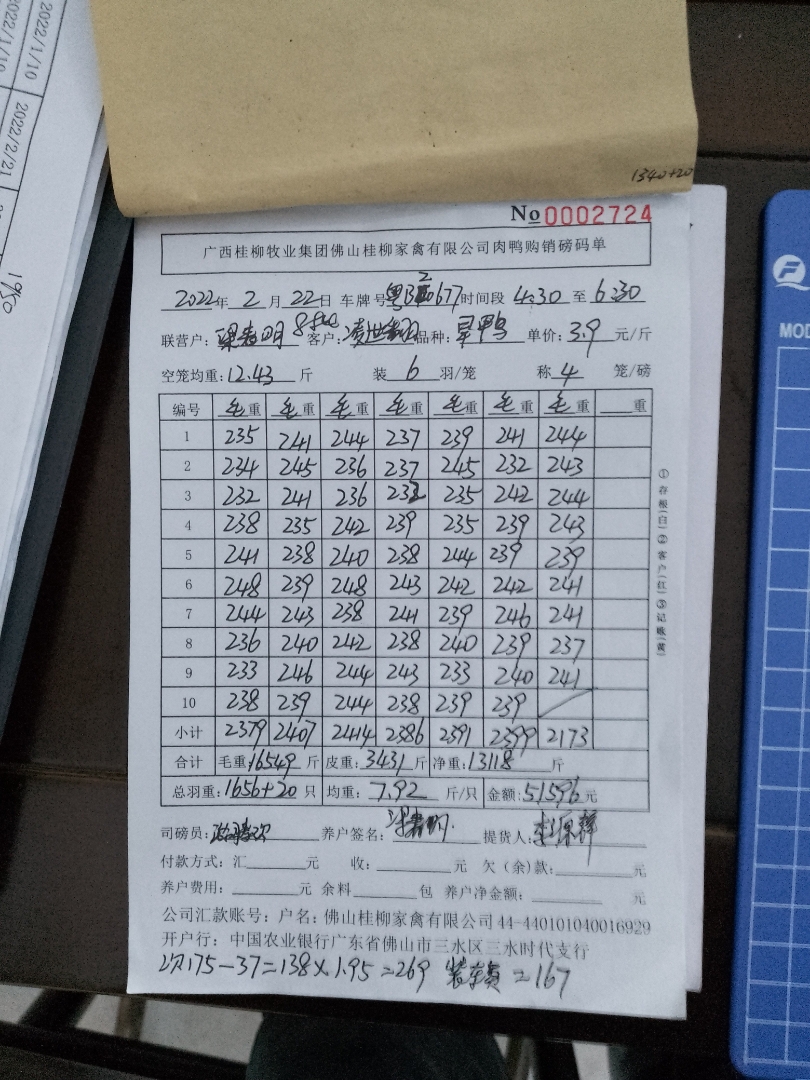 2022/1/10
2022/1/10
2022/2/21
1950
1340+20
No 0002724
广西桂柳牧业集团佛山桂柳家禽有限公司肉鸭购销磅码单
2022年 2 月 22日 车牌号 677 时间段 4:30 至 6:30
联营户: 明 客户: 品种: 旱鸭 单价: 3.9 元/斤
空笼均重: 12.43 斤 装 6 羽/笼 称 4 笼/磅
编号 毛重 毛重 毛重 毛重 毛重 毛重 毛重 重
1 235 241 244 237 239 241 244
2 234 245 236 237 245 232 243
3 232 241 236 232 235 242 244
4 238 235 242 239 235 239 243
5 241 238 240 238 244 239 239
6 248 239 248 243 242 242 241
7 244 243 238 241 239 246 241
8 236 240 242 238 240 239 237
9 233 246 244 243 233 240 241
10 238 239 244 238 239 239
小计 2379 2407 2414 2386 2391 2399 2173
合计 毛重: 16549 斤 皮重: 3431 斤 净重: 13118 斤
总羽重: 1656+20 只 均重: 7.92 斤/只 金额: 51596 元
司磅员: 养户签名: 提货人:
付款方式: 汇 元 收: 元 欠(余)款: 元
养户费用: 元 余料 包 养户净金额: 元
公司汇款账号: 户名: 佛山桂柳家禽有限公司 44-440101040016929
开户行: 中国农业银行广东省佛山市三水区三水时代支行
175-37=138×1.95=269 =167
①存根(白)②客户(红)③记账(黄)
MOD